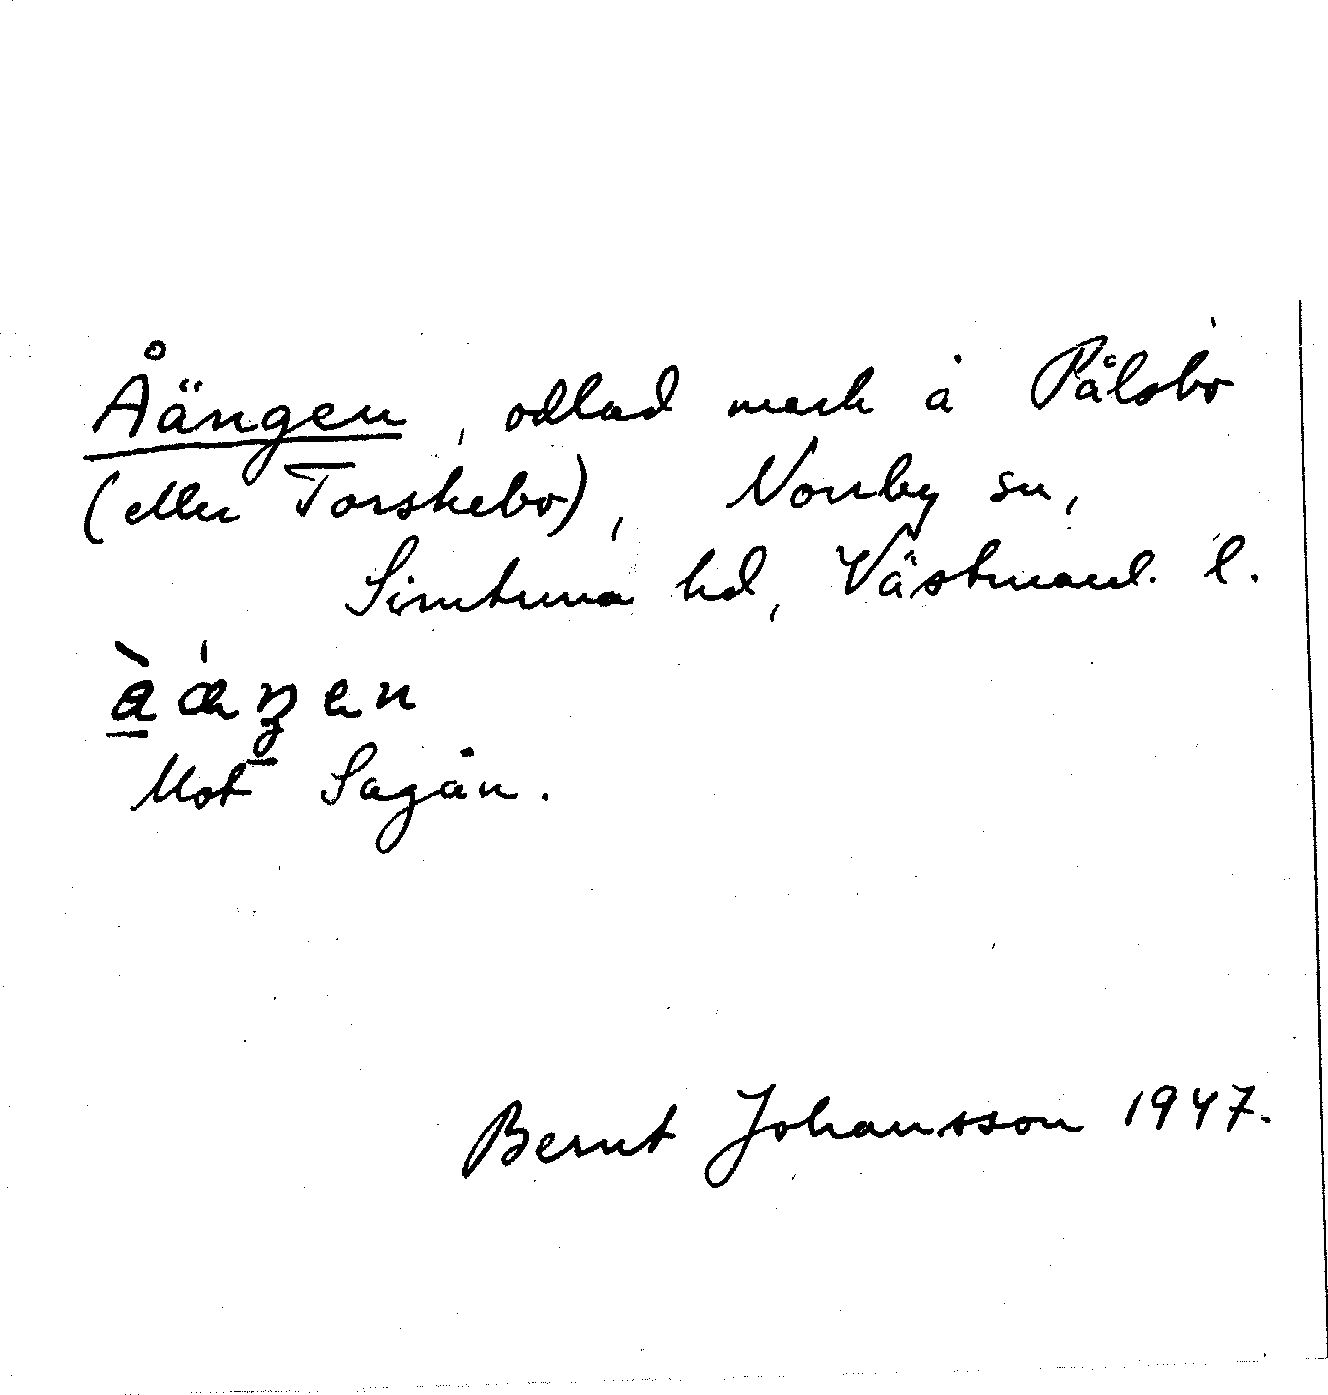 Åängen, odlad mark å Pålsbo
(eller Torskebo), Norrby sn,
Simtuna hd, Västmanl. l.
Mot Sagån.
Bernt Johansson 1947.